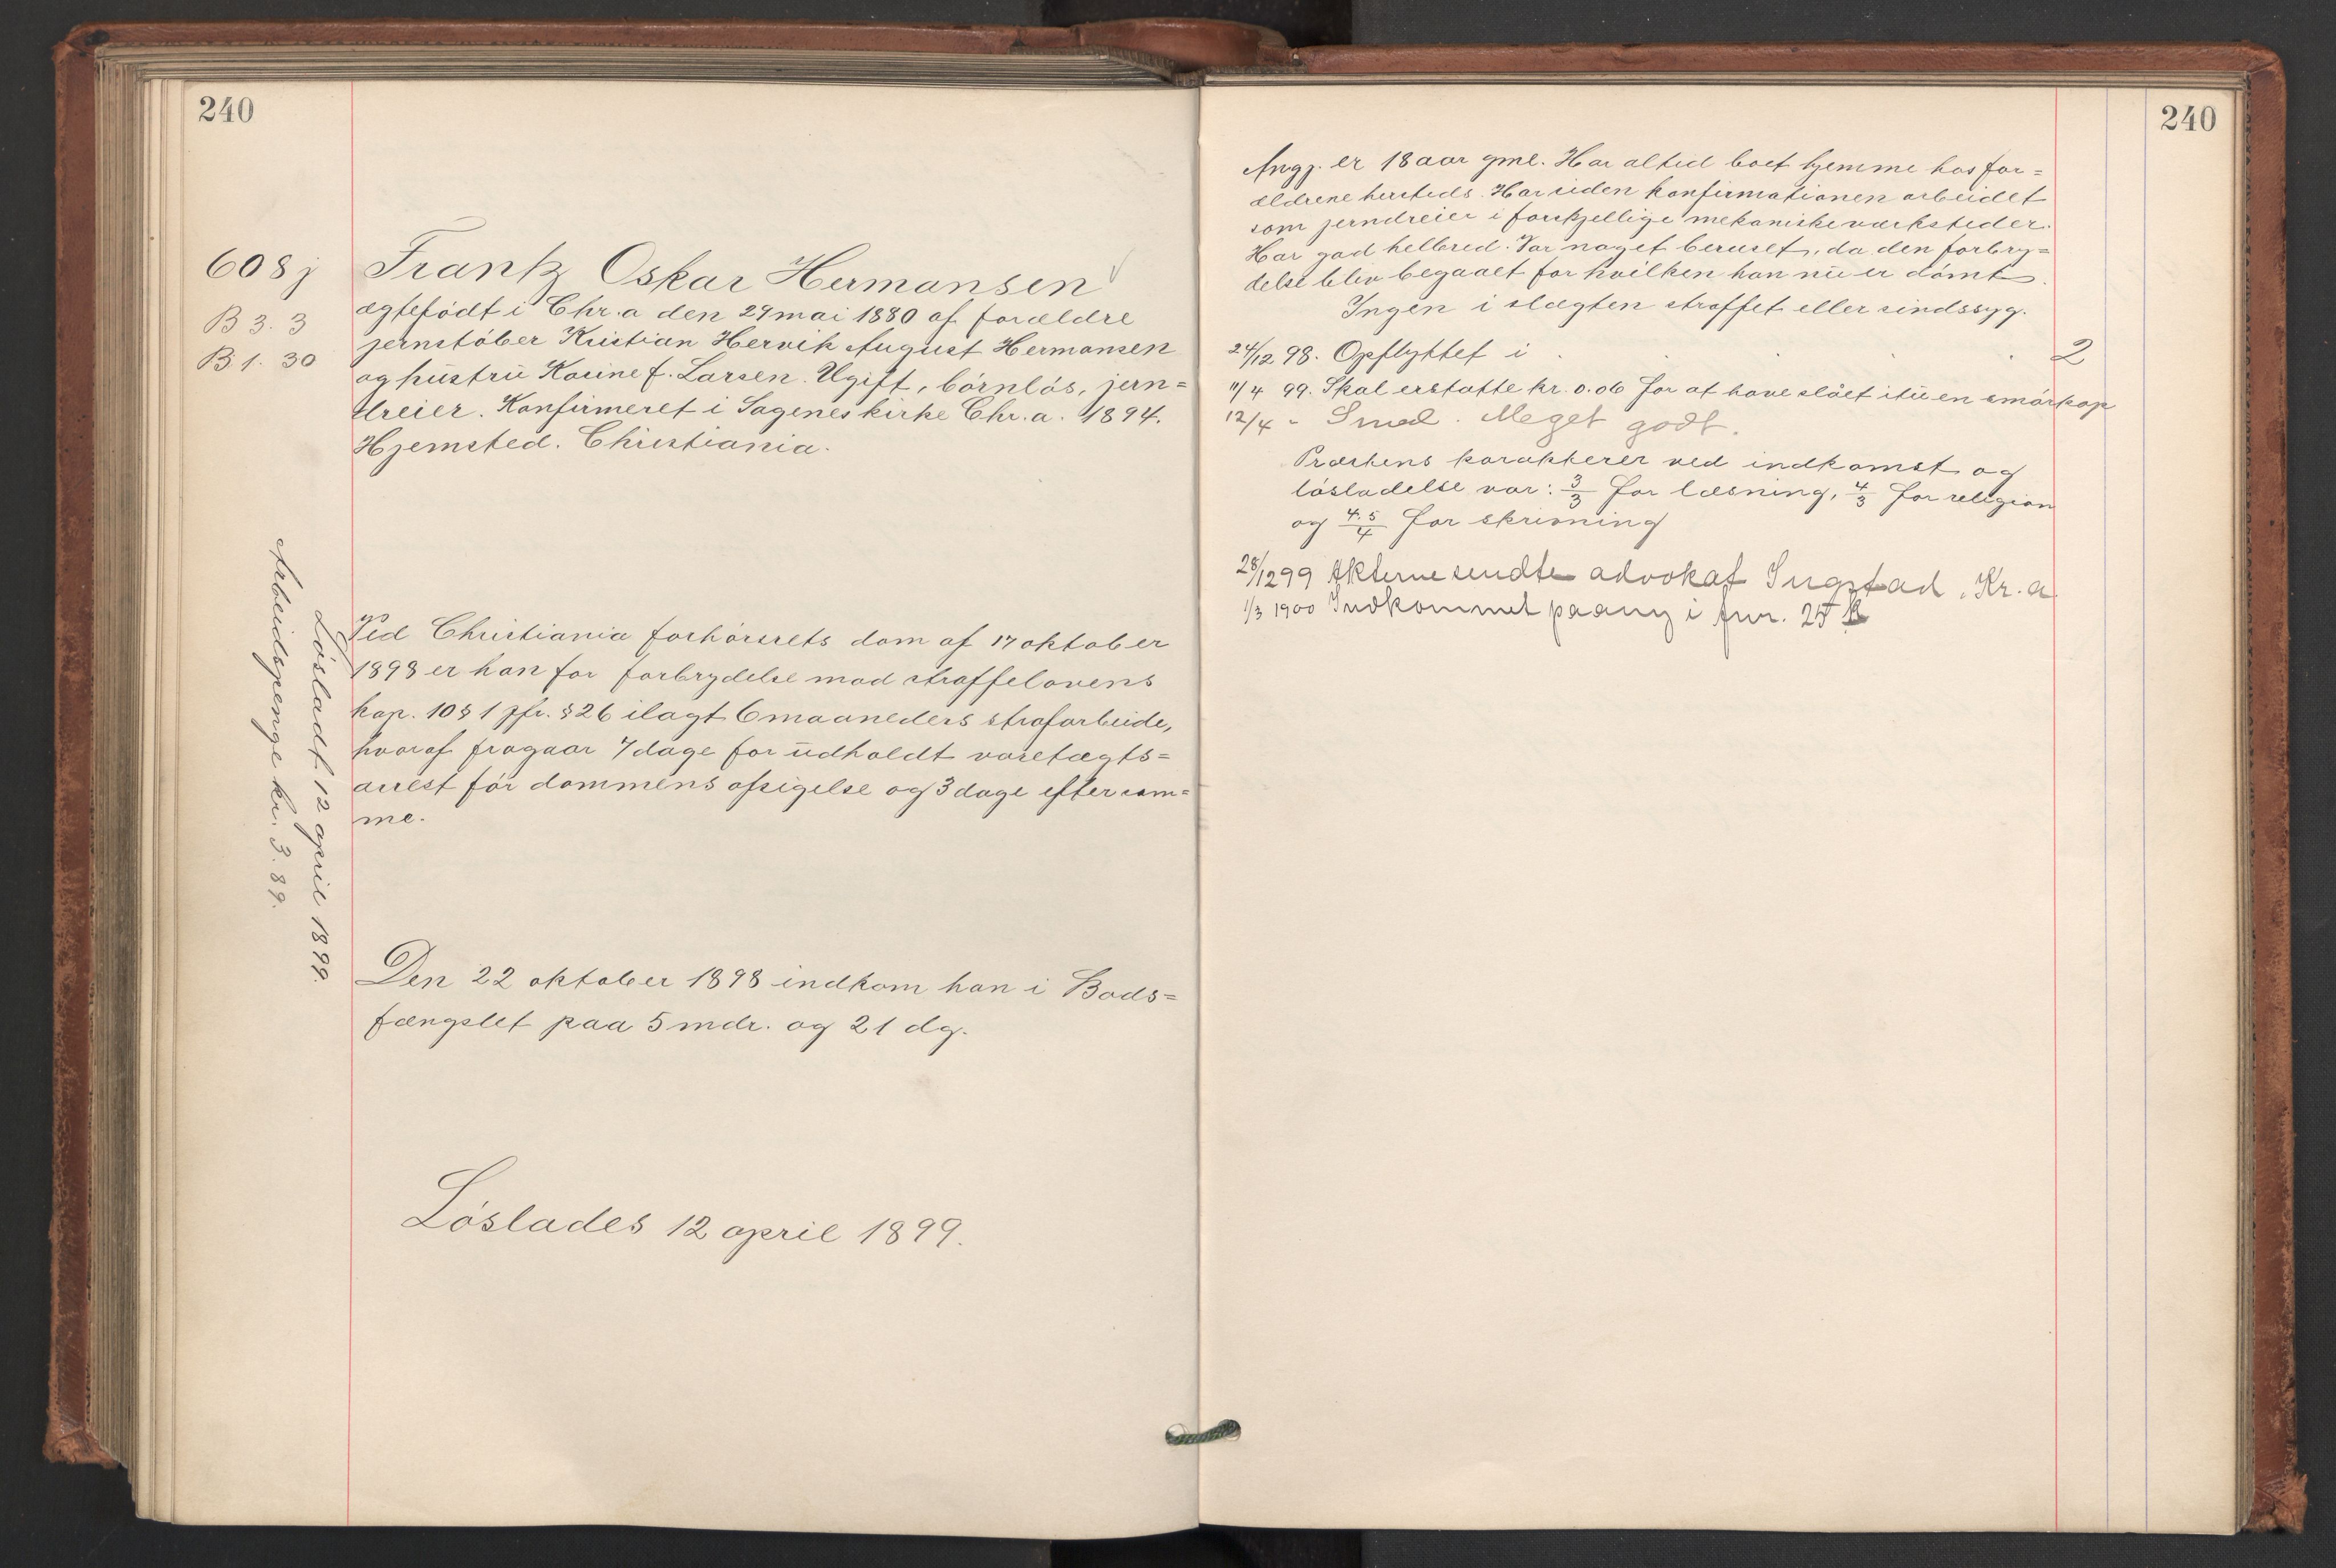 240
608 j
B 3. 3
B 1. 30
Frank Oskar Hermansen
ægtefödt i Chr.a den 29 mai 1880 af forældre
jernstöber Kristian Henrik August Hermansen
og hustru Karine f. Larsen. Ugift, börnlös, jern=
dreier. Konfirmeret i Sagenes kirke Chr.a. 1894.
Hjemsted. Christiania.
Ved Christiania forhörsrets dom af 17 oktober
1898 er han for forbrydelse mod straffelovens
kap. 10 § 1 jfr. § 26 ilagt 6 maaneders strafarbeide,
hvoraf fragaar 7 dage for udholdt varetægts=
arrest för dommens afsigelse og 3 dage efter sam=
me.
Lösladt 12 april 1899.
Arbeidspenge kr. 3.89.
Den 22 oktober 1898 indkom han i Bods=
fængslet paa 5 mdr. og 21 dg.
Löslades 12 april 1899.
240
Angj. er 18 aar gml. Har altid boet hjemme hos for=
ældrene hersteds. Har siden konfirmationen arbeidet
som jerndreier i forskjellige mekaniske værksteder.
Har god helbred. Var noget beruset, da den forbry=
delse blev begaaet for hvilken han nu er dömt.
Ingen i slægten straffet eller sindssyg.
24/12 98. Opflyttet i . . . 2
11/4 99. Skal erstatte kr. 0.06 for at have slået itu en smörkop
12/4 - Smed. Meget godt.
Præstens karakterer ved indkomst og
lösladelse var: 3/3 for læsning, 4/3 for religion
og 4.5/4 for skrivning
28/12 99 Akterne sendte advokat Ingstad, Kr.a.
1/3 1900 Indkommet paany i fnr. 25